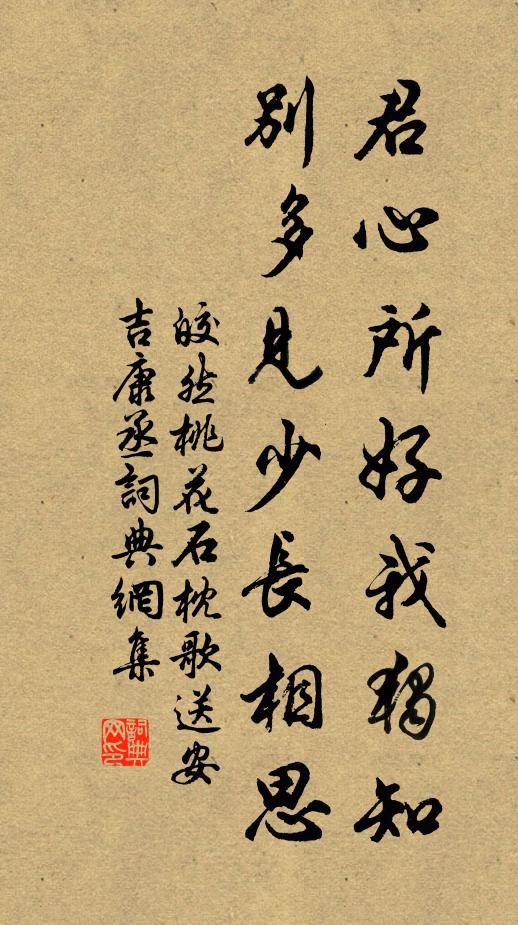 君心所好我獨知
別多見少長相思
皎然桃花石枕歌送安
吉康丞詞典網集
詞典
网印